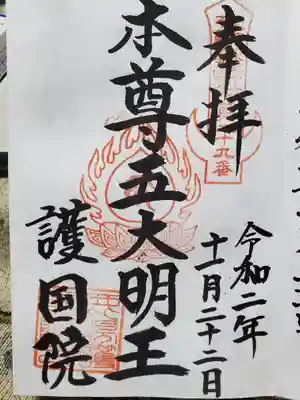 奉拝
十九番
本尊五大明王
護国院
令和二年
十一月二十二日